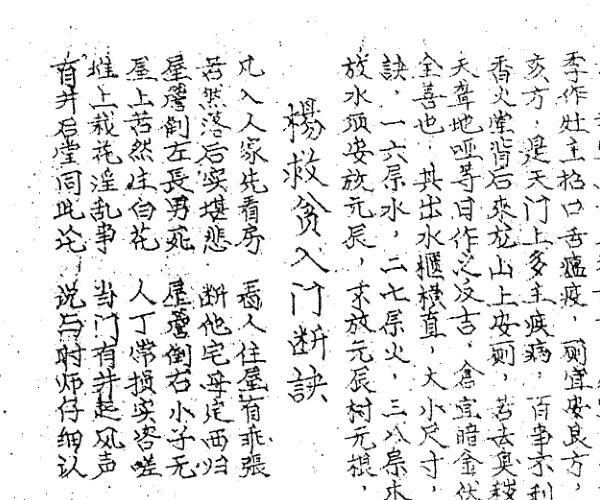 季作灶主招口舌瘟疫，厠宜安良方，
亥方，是天门上多主疾病，百事不利
香火堂背后來龙山上安厠，若去臭秽
天聋地哑等日作之反吉，倉宜暗金伏
全善也，其出水櫃橫直，大小尺寸，
訣，一六屬水，二七屬火，三八屬木
放水須安放元辰，未放元辰树元根，
楊救贫入门断訣
凡入人家先看房 看人住屋有乖張
若然落后实堪悲 断他宅母定西归
屋簷倒左長男死 屋簷倒右小子无
屋上若然生白花 人丁常損实咨嗟
堆上栽花淫乱事 当门有井起风声
有井后堂同此论 说与时师仔细认